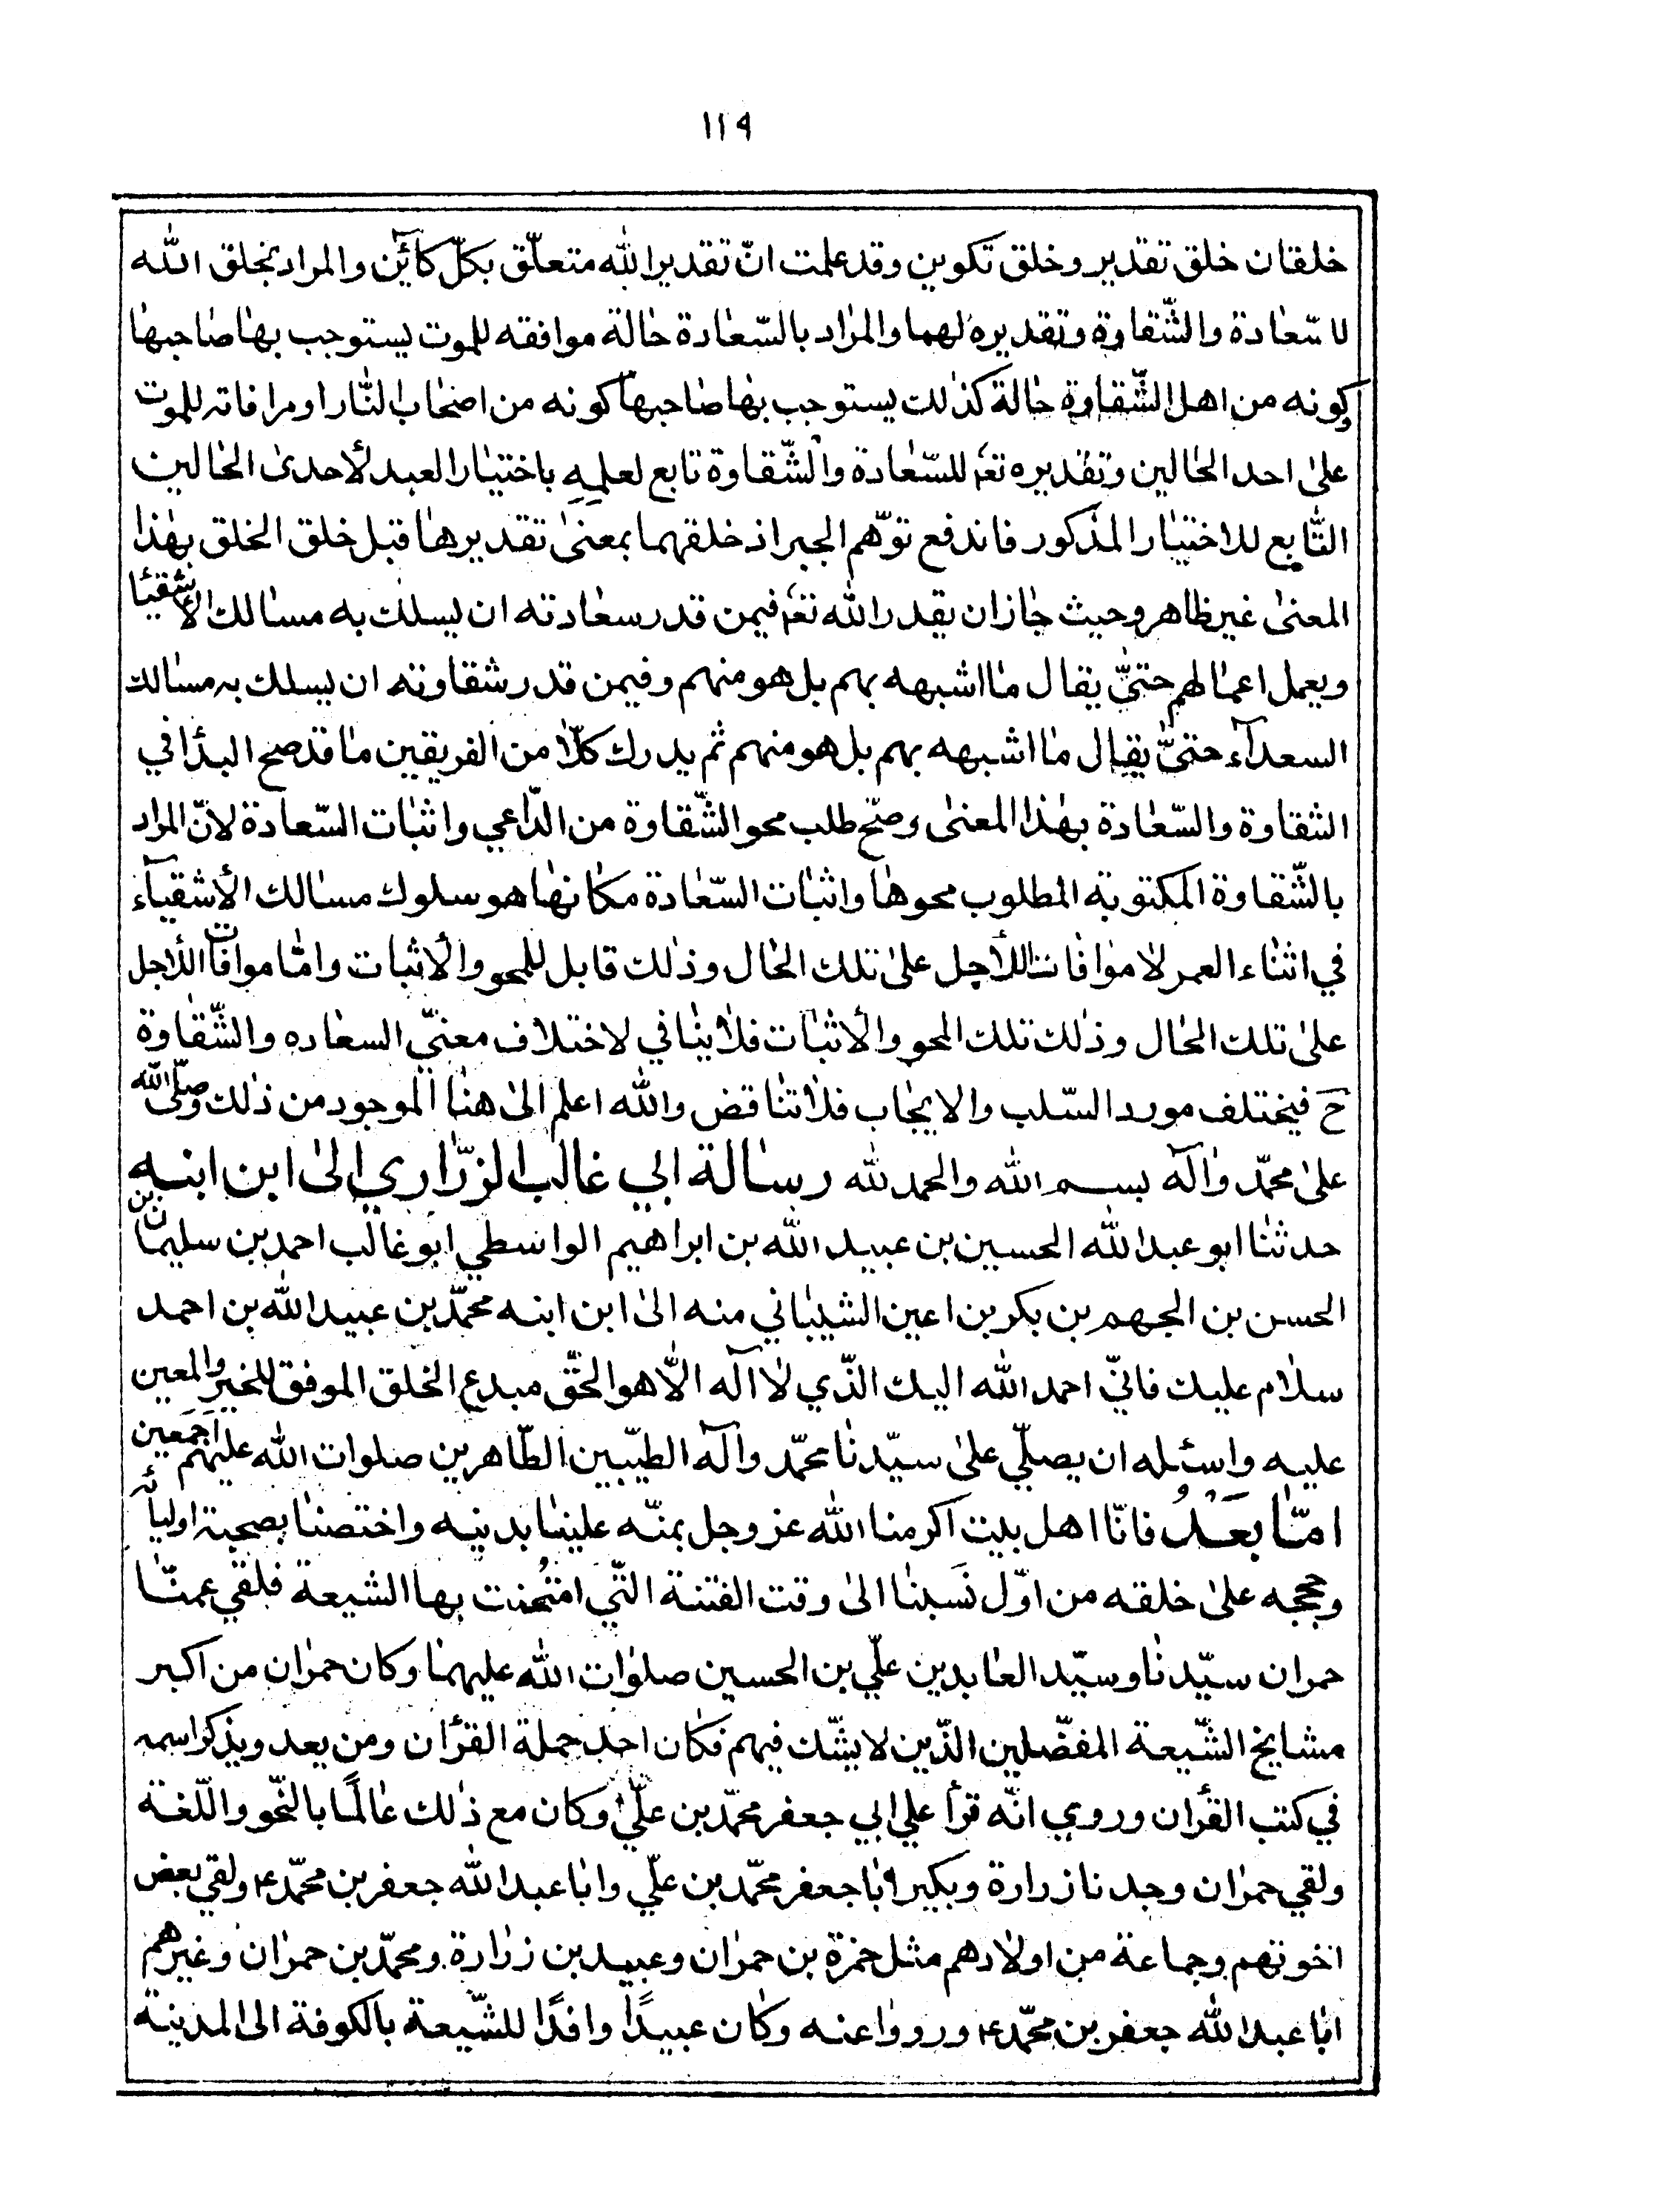 ١١٩
خلقان خلق تقدير وخلق تكوين وقد علمت انّ تقدير الله متعلّق بكلّ كآئن والمراد بخلق الله
لاسّعادة والشّقاوة وتقديره لهما والمراد بالسّعادة حالة موافقه للموت يستوجب بها صاحبها
كونه من اهل الشّقاوة حالة كذلك يستوجب بها صاحبها كونه من اصحاب النّار او مرافاته للموت
على احد الحالين وتقديره تعۤ للسّعادة والشّقاوة تابع لعلمه باختيار العبد لأحدى الحالين
التّابع للاختيار المذكور فاندفع توّهم الجبر اذ خلقهما بمعنى تقديرها قبل خلق الخلق بهذا
المعنى غير ظاهر وحيث جازان يقدر الله تعۤ فيمن قدر سعادته ان يسلك به مسالك الأشقيا
ويعمل اعمالهم حتىّ يقال ما اشبهه بهم بل هو منهم وفيمن قدر شقاوته ان يسلك به مسالك
السعدآء حتىّ يقال ما اشبهه بهم بل هو منهم ثم يدرك كلّا من الفريقين ما قد صح البدا في
الشقاوة والسّعادة بهذا المعنى وصحّ طلب محو الشّقاوة من الدّاعي واثبات السّعادة لانّ المراد
بالشّقاوة المكتوبة المطلوب محوها واثبات السّعادة مكانها هو سلوك مسالك الأشقيآء
في اثناء العمر لا موافات الأجل على تلك الحال وذلك قابل للمحو والأثبات وامّا موافات الأجل
على تلك الحال وذلك تلك المحو والأثبات فلا ينافي لاختلاف معنيّ السعاده والشّقاوة
حَ فيختلف مورد السّلب والايجاب فلا تناقض والله اعلم الى هنا الموجود من ذلك وصلّى الله
على محمّد وآله بسم الله والحمد لله رسالة ابي غالب الزرّاري الى ابن ابنه
حدثنا ابو عبد الله الحسين بن عبيد الله بن ابراهيم الواسطي ابو غالب احمد بن سليمان بن
الحسن بن الجهم بن بكر بن اعين الشيباني منه الى ابن ابنه محمّد بن عبيد الله بن احمد
سلام عليك فانيّ احمد الله اليك الذّي لا اله الّا هو الحقّ مبدع الخلق الموفق للخير والمعين
عليه واسئله ان يصلّي على سيّدنا محمّد وآله الطيّبين الطّاهرين صلوات الله عليهم اجمعين
امّا بَعْدُ فانّا اهل بيت اكرمنا الله عز وجل بمنّه علينا بدينه واختصنا بصحبة اوليائه
وحججه على خلقه من اوّل نَسَبنا الى وقت الفتنة التّي امتُحنت بها الشيعة فلقي عمنّا
حمران سيّدنا وسيّد العابدين عليّ بن الحسين صلوات الله عليهما وكان حمران من اكبر
مشايخ الشّيعة المفضّلين الذّين لا يشّك فيهم فكان احد حملة القرآن ومن يعد ويذكر اسمه
في كتب القرآن وروي انّه قرأ على ابي جعفر محمّد بن عليّ وكان مع ذلك عالمًا بالنّحو واللّغة
ولقي حمران وجدنا زرارة وبكير ابا جعفر محمّد بن عليّ وابا عبد الله جعفر بن محمّد ع ولقي بعض
اخوتهم وجماعة من اولادهم مثل حمزة بن حمران وعبيد بن زرارة ومحمّد بن حمران وغيرهم
ابا عبد الله جعفر بن محمّد ع ورووا عنه وكان عبيدًا وافدًا للشّيعة بالكوفة الى المدينة